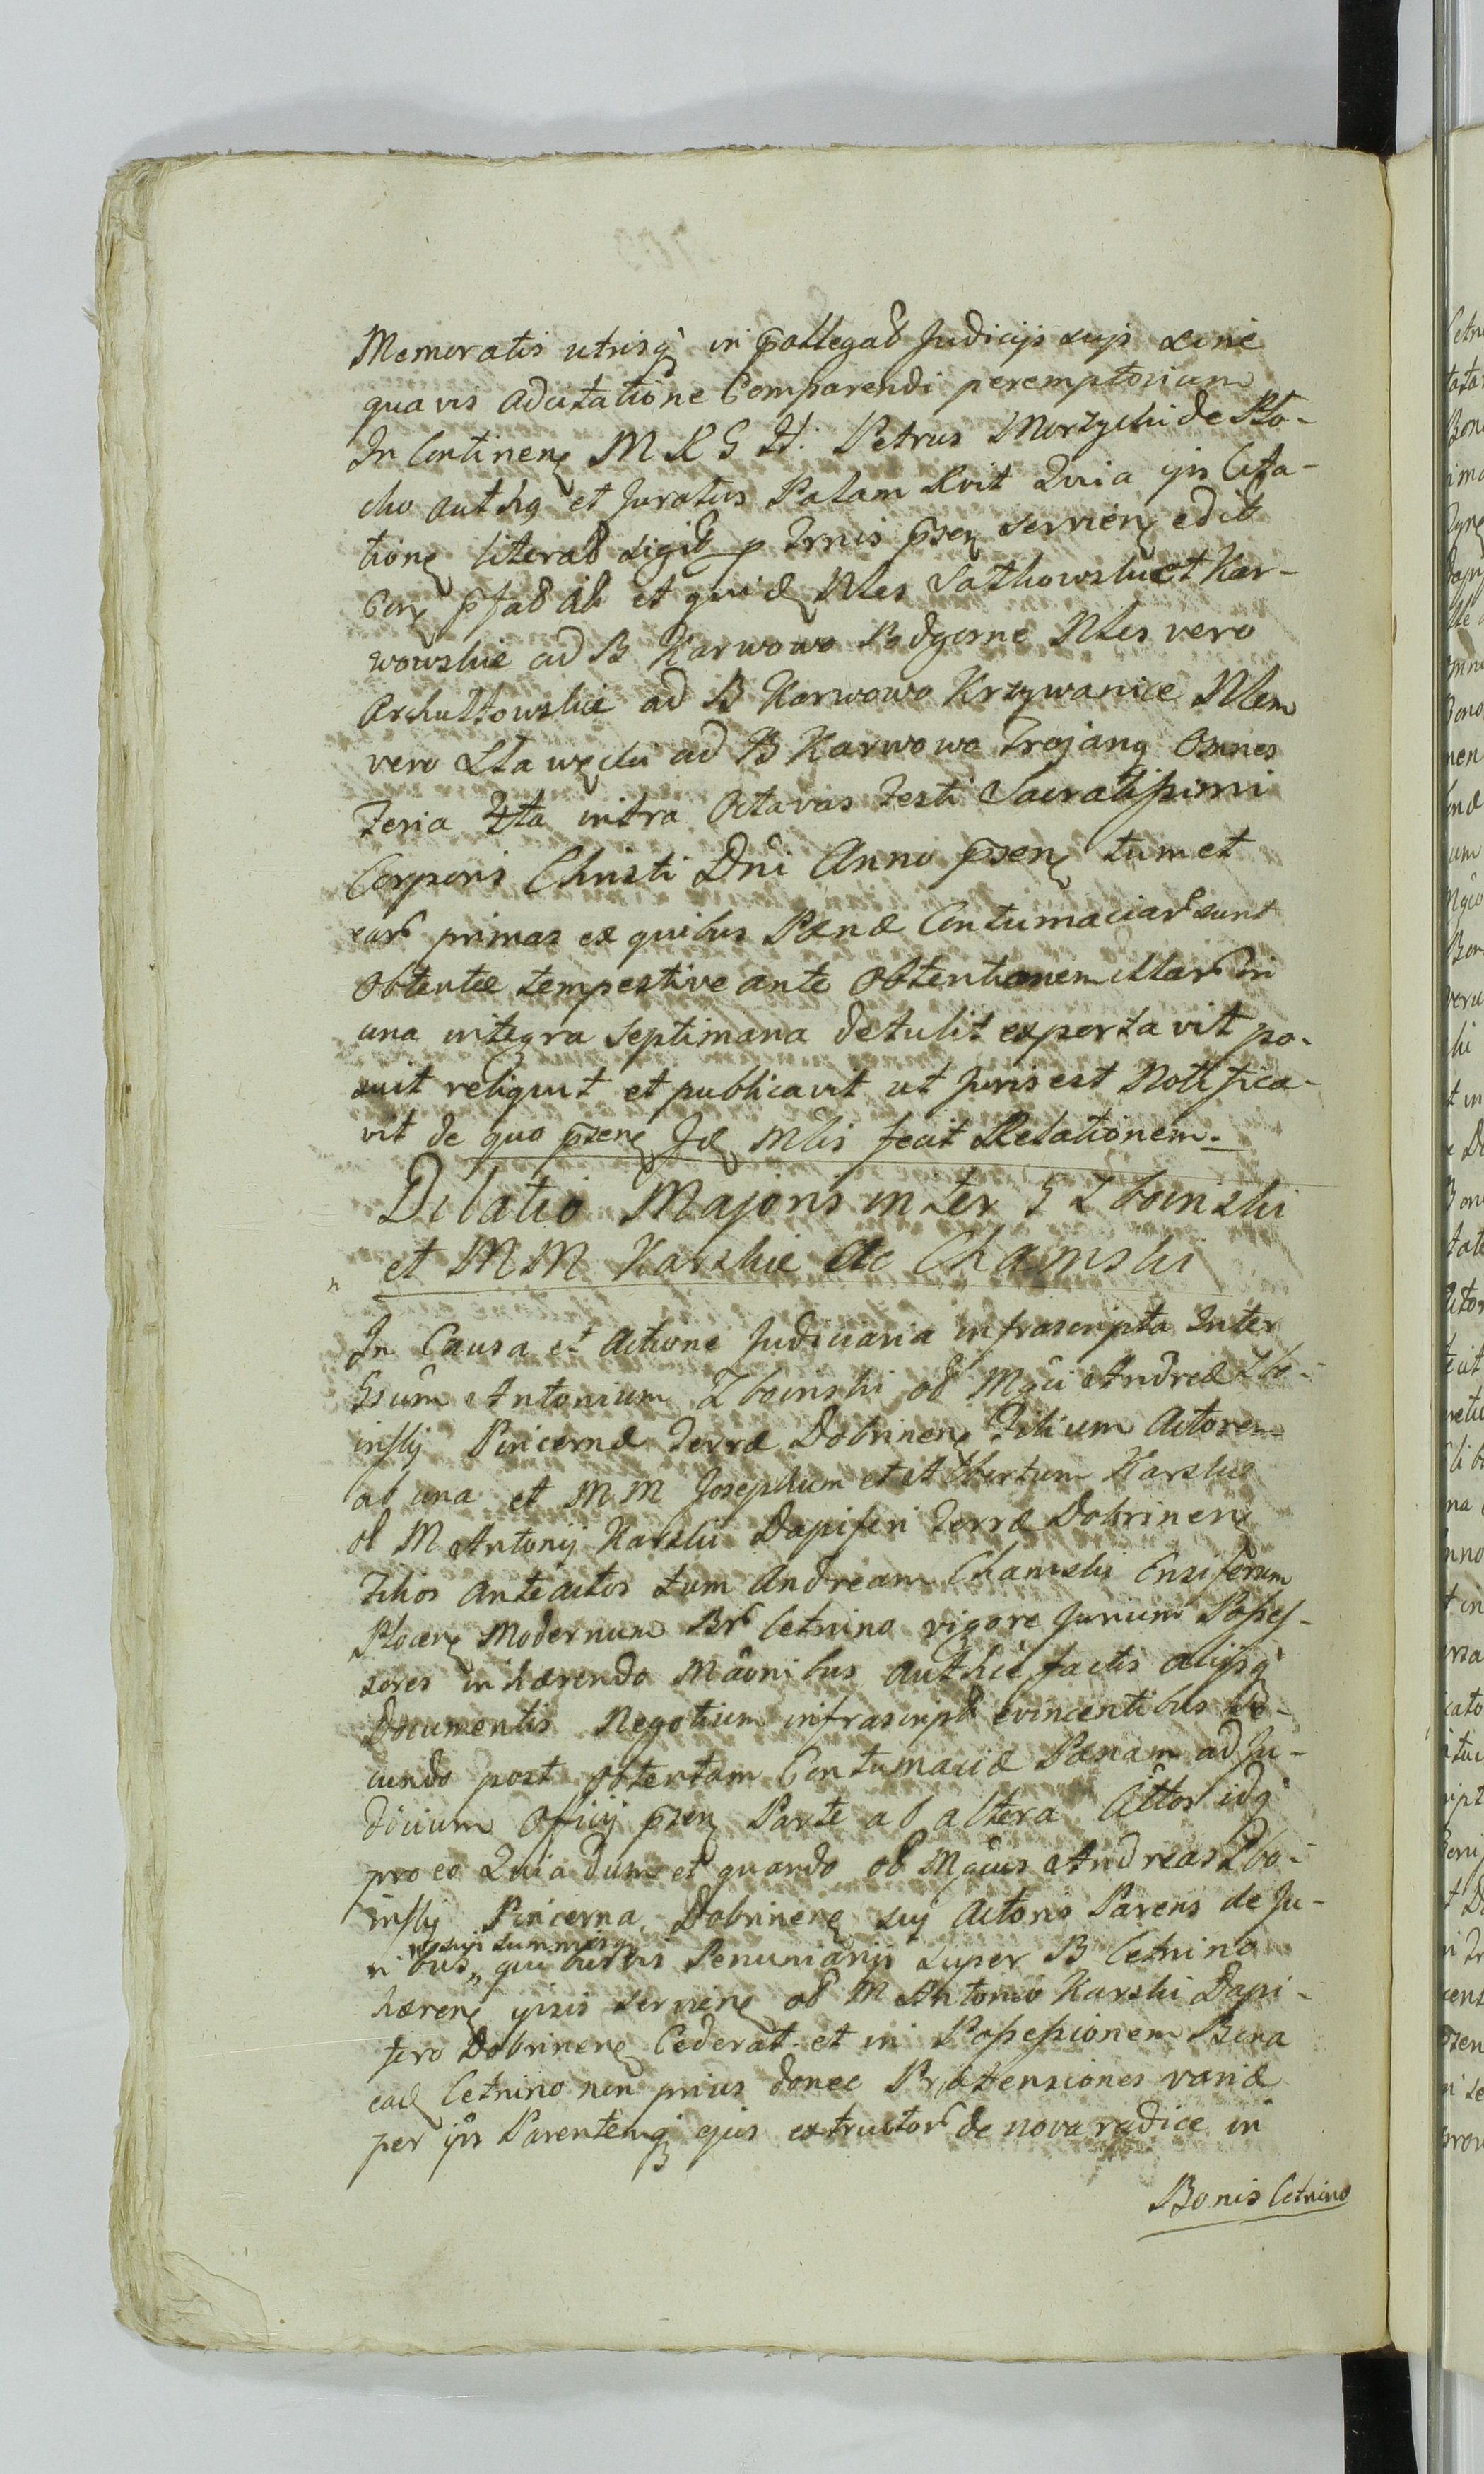 Memoratis utrisq in pallegat Judicijs suis sine
quavis adcitatione Comparendi peremptorium
In Continen M R G H. Petrus Morzycki de Pło-
cko authq et Juratus Palam Rvit Quia ijs Cita-
tione literat sigit p Trnis psen servien edit
Con pfat ab et quid Nles Sathowskie et Kar-
wowskie ad B Karwowo Podgorne Nles vero
Archuttowskie ad B Karwowo Krzywanice Nlem
vero Stawęcki ad B Karwowo Trojany Omnes
Feria 4ta intra Octavas Festi Sacratissimi
Corporis Christi Dni Anno psen tum et
ear primas ex quibus Pænæ Contumaciar sunt
obtentæ tempestive ante obtentionem illar in
una integra septimana detulit exportavit po-
suit reliquit et publicavit ut Juris est Notifica-
vit de quo psens Jd Mlis fecit Relationem.
Dilatio Majoris inter G Zboinski
et MM Karskie etc Chamski
In Causa et Actione Judiciaria infrascripta Inter
Gsum Antonium Zboinski ol Mgci Andreæ Zbo-
inskij Pincernæ Terræ Dobrinen Filium Actorem
ab una et MM Josephum et Albertum Karskie
ol M Antonij Karski Dapiferi Terræ Dobrinen
Filios anteactos tum Andream Chamski Ensiferum
Plocen Modernum Br Cetnino vigore Jurium Posses-
sores inhærendo Mâonibus authcè factis alijsq
Documentis Negotium infrascript evincentibus Do-
cundo post obtentam Contumaciæ Pænam ad Ju-
dicium Officij psen Parte ab altera Cittos idq
pro eo Quia dum et quando ol Mgcus Andreas Zbo-
inskij Pincerna Dobrinen sui Actoris Parens de Ju-
suis summisq
ribus quibusvis Penuniarijs super B Cetnino
hæren ipsis servien ol M Antonio Karski Dapi-
fero Dobrinen Cederat et in Possessionem Bona
ead Cetnino non prius donec Prætensiones variæ
per ips Parentemq ejus extructor de nova radice in
Bonis Cetnino